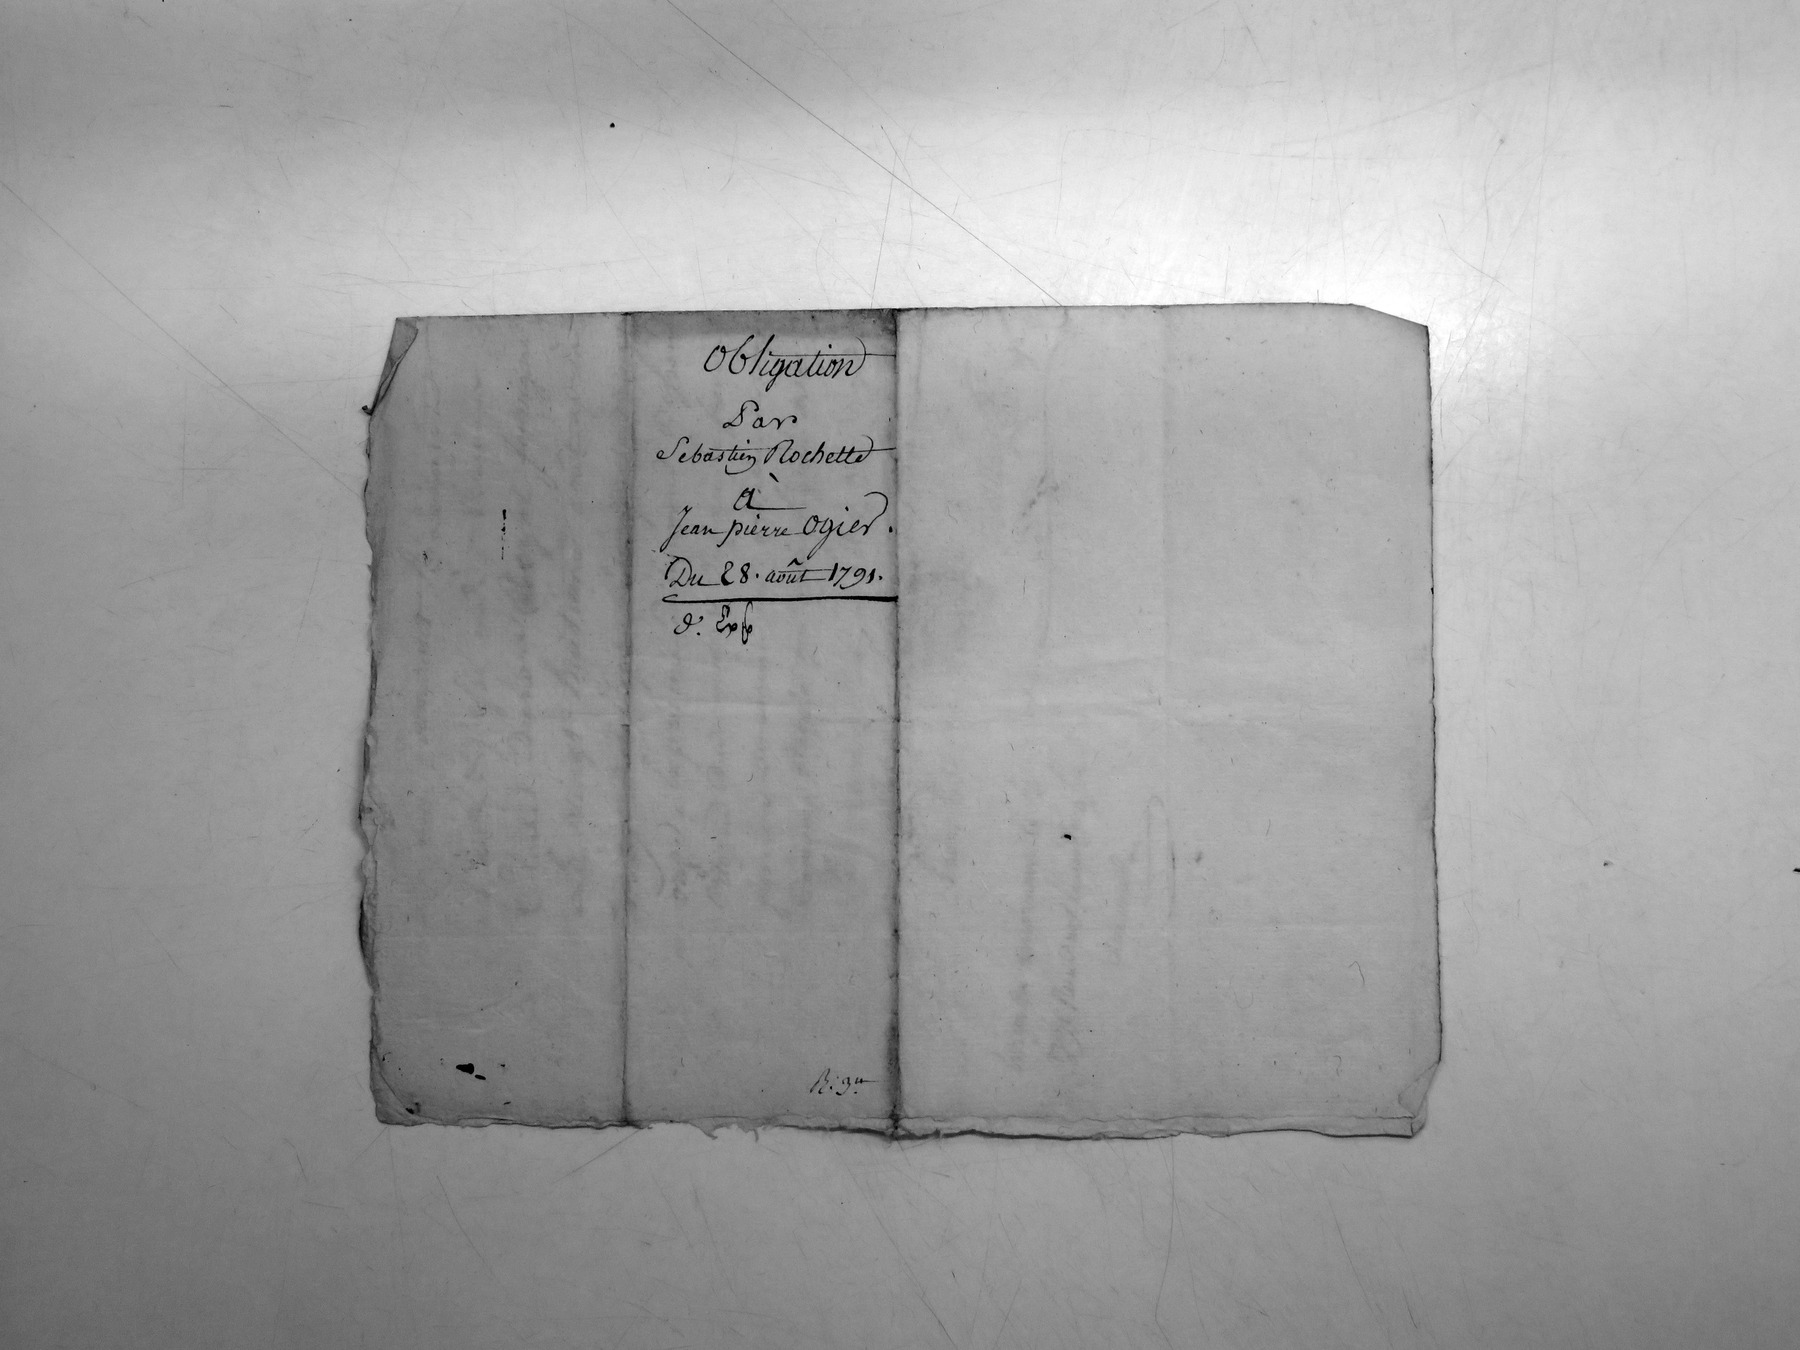 Obligation
Par
Sebastien Rochette
à
Jean pierre Ogier.
Du 28. août 1791.